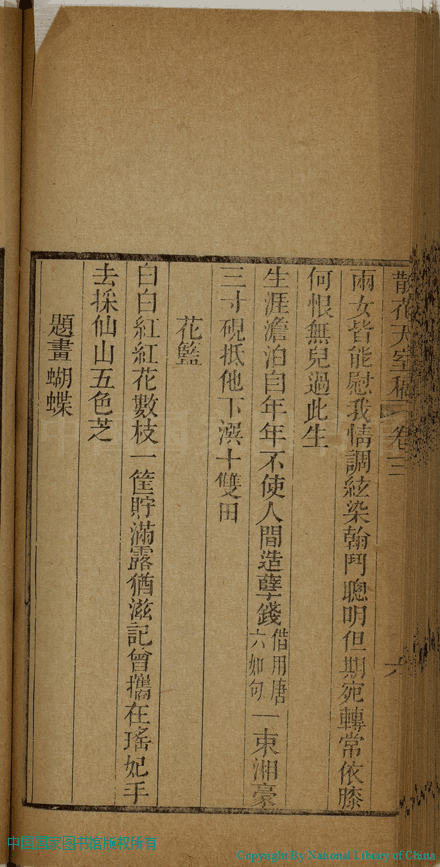 散花天室稿 卷三 六
兩女皆能慰我情調絃染翰鬥聰明但期宛轉常依膝
何恨無兒過此生
生涯澹泊自年年不使人間造孽錢借用唐六如句一束湘毫
三寸硯抵他下潠十雙田
花籃
白白紅紅花數枝一筐貯滿露猶滋記曾攜在瑤妃手
去採仙山五色芝
題畫蝴蝶
中国国家图书馆版权所有
Copyright By National Library of China